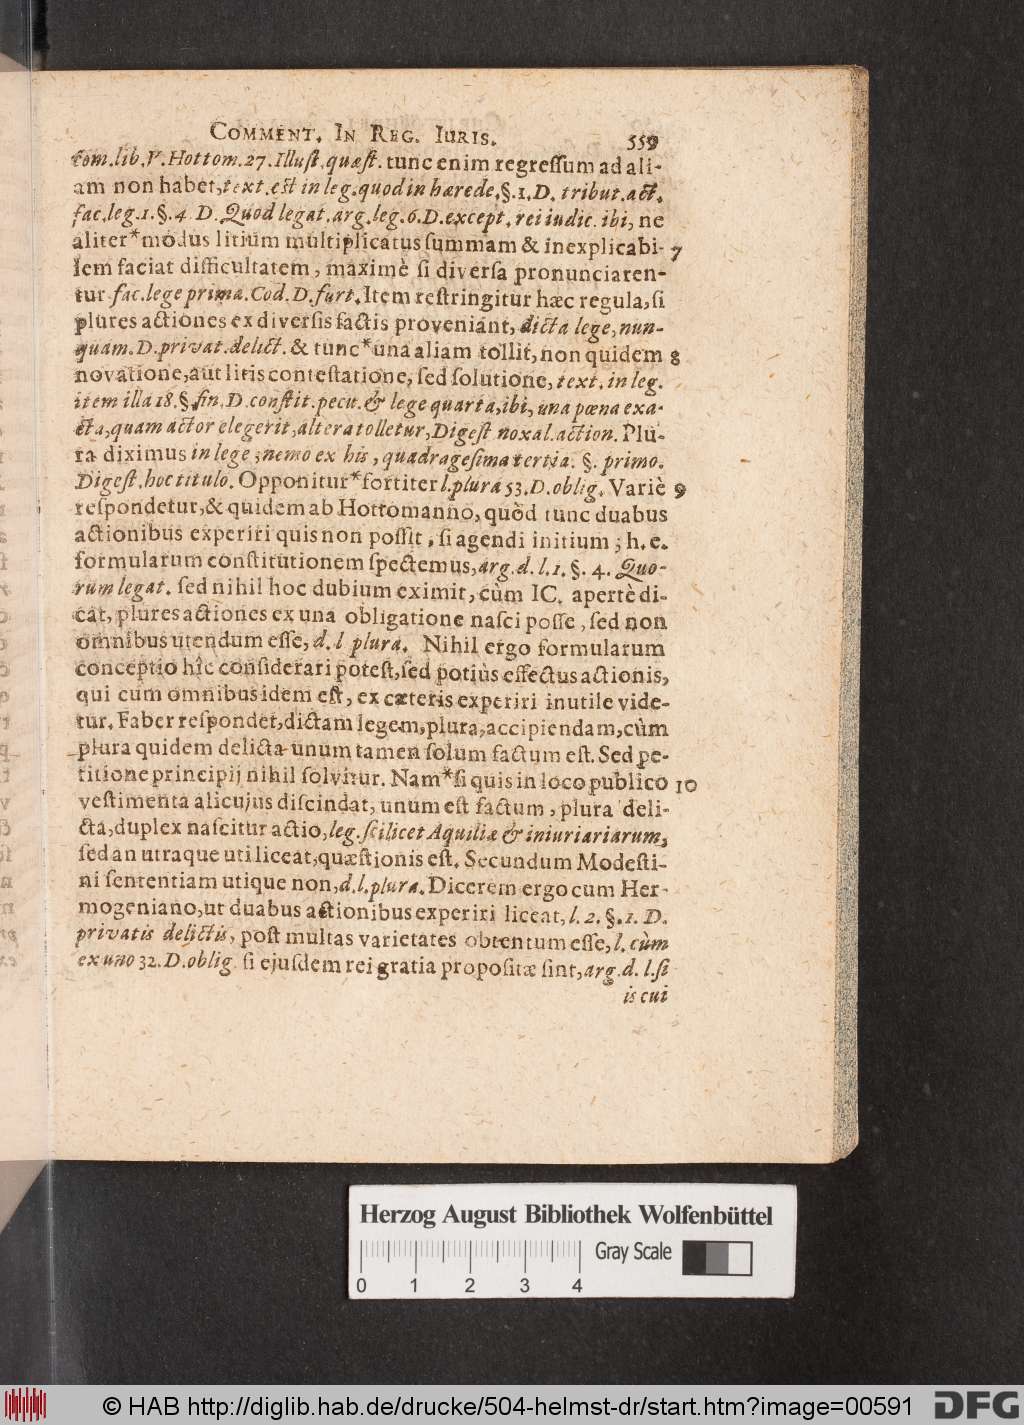 COMMENT. IN REG. IURIS. 559
com. lib. V. Hottom. 27. Illuſt. quæſt. tunc enim regreſſum ad ali-
am non habet, text. est in leg. quod in hærede. §. 1. D. tribut. act.
fac. leg. 1. §. 4 D. Quod legat. arg. leg. 6. D. except. rei iudic. ibi, ne
aliter* modus litium multiplicatus ſummam & inexplicabi- 7
lem faciat difficultatem, maximè ſi diverſa pronunciaren-
tur fac. lege prima. Cod. D. furt. Item reſtringitur hæc regula, ſi
plures actiones ex diverſis factis proveniant, dicta lege, nun-
quam. D. privat. delict. & tunc* una aliam tollit, non quidem 8
novatione, aut litis conteſtatione, ſed ſolutione, text. in leg.
item illa 18. §. fin. D. conſtit. pecu. & lege quarta, ibi, una pœna exa-
cta, quam actor elegerit, altera tolletur, Digeſt noxal. action. Plu-
ra diximus in lege ; nemo ex his, quadrageſima tertia. §. primo.
Digeſt. hoc titulo. Opponitur* fortiter l. plura 53. D. oblig. Variè 9
reſpondetur, & quidem ab Hottomanno, quòd tunc duabus
actionibus experiri quis non poſſit, ſi agendi initium ; h. e.
formularum conſtitutionem ſpectemus, arg. d. l. 1. §. 4. Quo-
rum legat. ſed nihil hoc dubium eximit, cùm IC. apertè di-
cat, plures actiones ex una obligatione naſci poſſe, ſed non
omnibus utendum eſſe, d. l plura. Nihil ergo formularum
conceptio hîc conſiderari poteſt, ſed potiùs effectus actionis,
qui cum omnibus idem eſt, ex cæteris experiri inutile vide-
tur. Faber reſpondet, dictam legem, plura, accipiendam, cùm
plura quidem delicta unum tamen ſolum factum eſt. Sed pe-
titione principij nihil ſolvitur. Nam* ſi quis in loco publico 10
veſtimenta alicujus diſcindat, unum eſt factum, plura deli-
cta, duplex naſcitur actio, leg. ſcilicet Aquiliæ & iniuriariarum,
ſed an utraque uti liceat, quæſtionis eſt. Secundum Modeſti-
ni ſententiam utique non, d. l. plura. Dicerem ergo cum Her-
mogeniano, ut duabus actionibus experiri liceat, l. 2. §. 1. D.
privatis delictis, poſt multas varietates obtentum eſſe, l. cùm
ex uno 32. D. oblig. ſi ejuſdem rei gratia propoſitæ ſint, arg. d. l. ſi
is cui
Herzog August Bibliothek Wolfenbüttel
Gray Scale
0 1 2 3 4
© HAB http://diglib.hab.de/drucke/504-helmst-dr/start.htm?image=00591 DFG